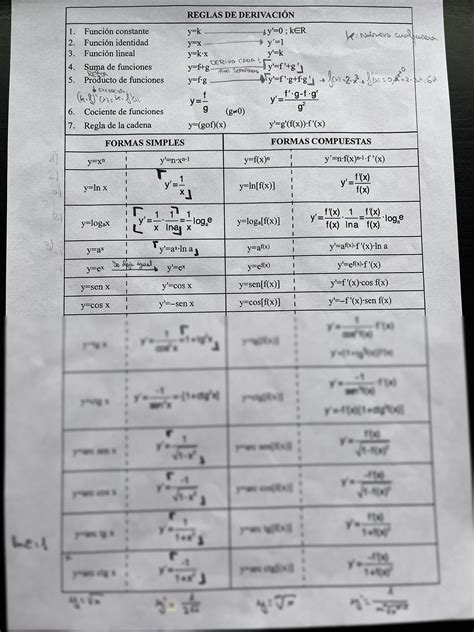 REGLAS DE DERIVACIÓN
1. Función constante y=k y'=0 ; k∈R
2. Función identidad y=x y'=1
3. Función lineal y=k·x y'=k
4. Suma de funciones y=f+g y'=f'+g'
5. Producto de funciones y=f·g y'=f'·g+f·g'
6. Cociente de funciones y=f/g (g≠0) y'=(f'·g-f·g')/g²
7. Regla de la cadena y=(gof)(x) y'=g'(f(x))·f'(x)
FORMAS SIMPLES FORMAS COMPUESTAS
y=xⁿ y'=n·xⁿ⁻¹ y=f(x)ⁿ y'=n·f(x)ⁿ⁻¹·f'(x)
y=ln x y'=1/x y=ln[f(x)] y'=f'(x)/f(x)
y=logₐx y'=1/x·1/lna=1/x logₐe y=logₐ[f(x)] y'=f'(x)/f(x)·1/lna=f'(x)/f(x)·logₐe
y=aˣ y'=aˣ·ln a y=a^f(x) y'=a^f(x)·f'(x)·ln a
y=eˣ y'=eˣ y=e^f(x) y'=e^f(x)·f'(x)
y=sen x y'=cos x y=sen[f(x)] y'=f'(x)·cos f(x)
y=cos x y'=−sen x y=cos[f(x)] y'=−f'(x)·sen f(x)
y=tg x y'=1/cos²x=1+tg²x y=tg[f(x)] y'=1/cos²f(x)·f'(x)
y'=[1+tg²f(x)]·f'(x)
y=ctg x y'=-1/sen²x=-[1+ctg²x] y=ctg[f(x)] y'=-1/sen²f(x)·f'(x)
y'=-f'(x)[1+ctg²f(x)]
y=arc sen x y'=1/√1-x² y=arc sen[f(x)] y'=f'(x)/√1-f(x)²
y=arc cos x y'=-1/√1-x² y=arc cos[f(x)] y'=-f'(x)/√1-f(x)²
y=arc tg x y'=1/1+x² y=arc tg[f(x)] y'=f'(x)/1+f(x)²
y=arc ctg x y'=-1/1+x² y=arc ctg[f(x)] y'=-f'(x)/1+f(x)²